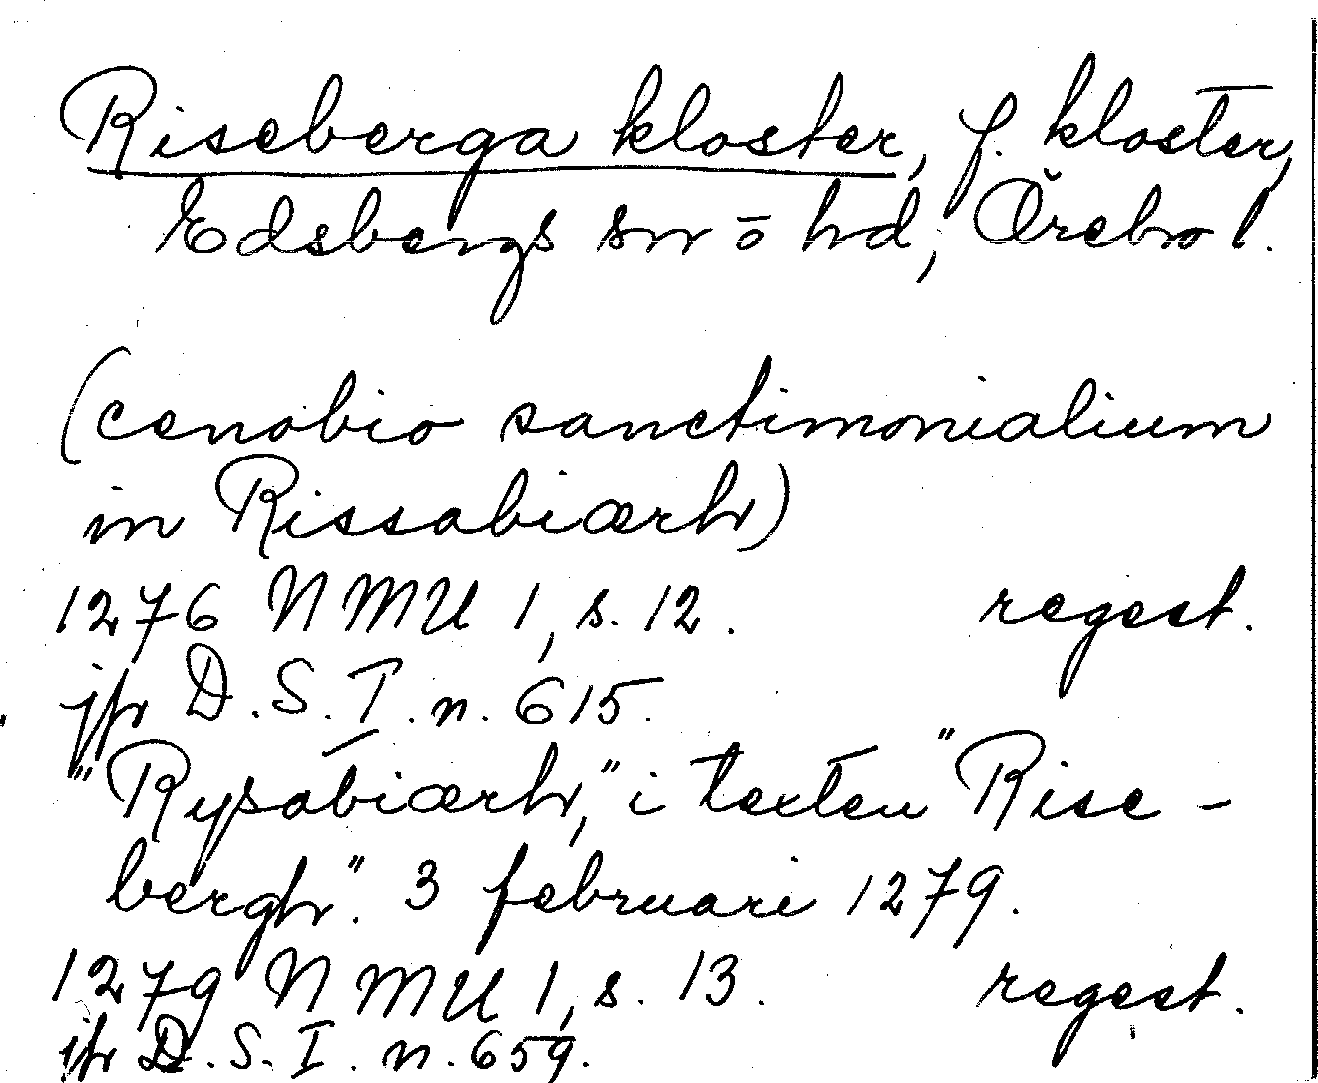 Riseberga kloster, f. kloster,
Edsbergs sn o hd, Örebro l.
(cenobio sanctimonialium
in Rissabiærh)
1276 NMU 1, s. 12. regest.
jfr D.S.I. n. 615.
"Rysabiærh," i texten "Rise-
bergh". 3 februari 1279.
1279 NMU 1, s. 13. regest.
jfr D.S.I. n. 659.